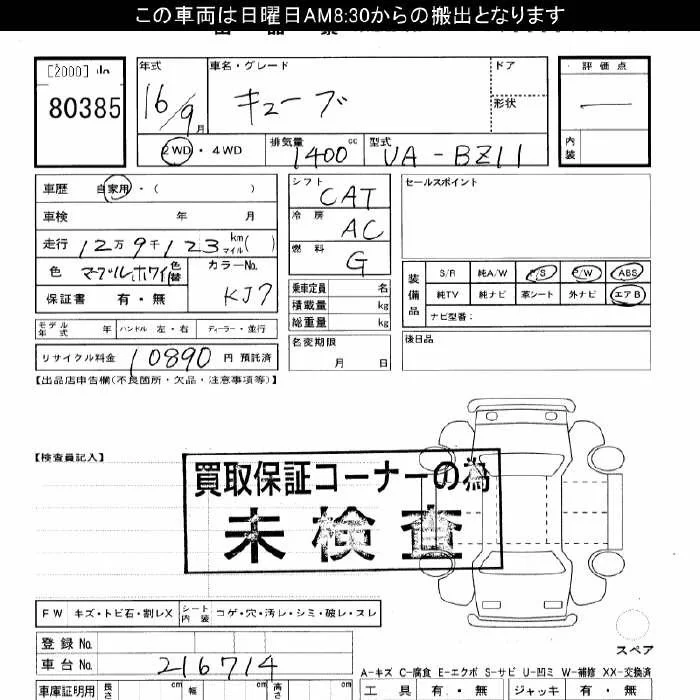 この車両は日曜日AM8:30からの搬出となります
[2000]
80385
年式
16/9月
車名・グレード
キューブ
ドア
形状
評価点
—
内装
2WD・4WD
排気量 1400 cc
型式 UA-BZ11
車歴 自家用・( )
車検 年 月
走行 12万9千123 km マイル( )
色 マーブルホワイト 色替
カラーNo. KJ7
保証書 有・無
シフト CAT
冷房 AC
燃料 G
乗車定員 名
積載量 kg
総重量 kg
名変期限
月 日
セールスポイント
装備品
S/R 純A/W P/S P/W ABS
純TV 純ナビ 革シート 外ナビ エアB
ナビ型番:
後日品
モデル年式 年 ハンドル 左・右 ディーラー・並行
リサイクル料金 10890 円 預託済
【出品店申告欄(不良箇所・欠品・注意事項等)】
【検査員記入】
買取保証コーナーの為
未検査
FW キズ・トビ石・割レX シート内装 コゲ・穴・汚レ・シミ・破レ・スレ
登録No.
車台No. 216714
スペア
A-キズ C-腐食 E-エクボ S-サビ U-凹ミ W-補修 XX-交換済
車庫証明用 長さ cm 幅 cm 高さ cm
工具 有・無 ジャッキ 有・無